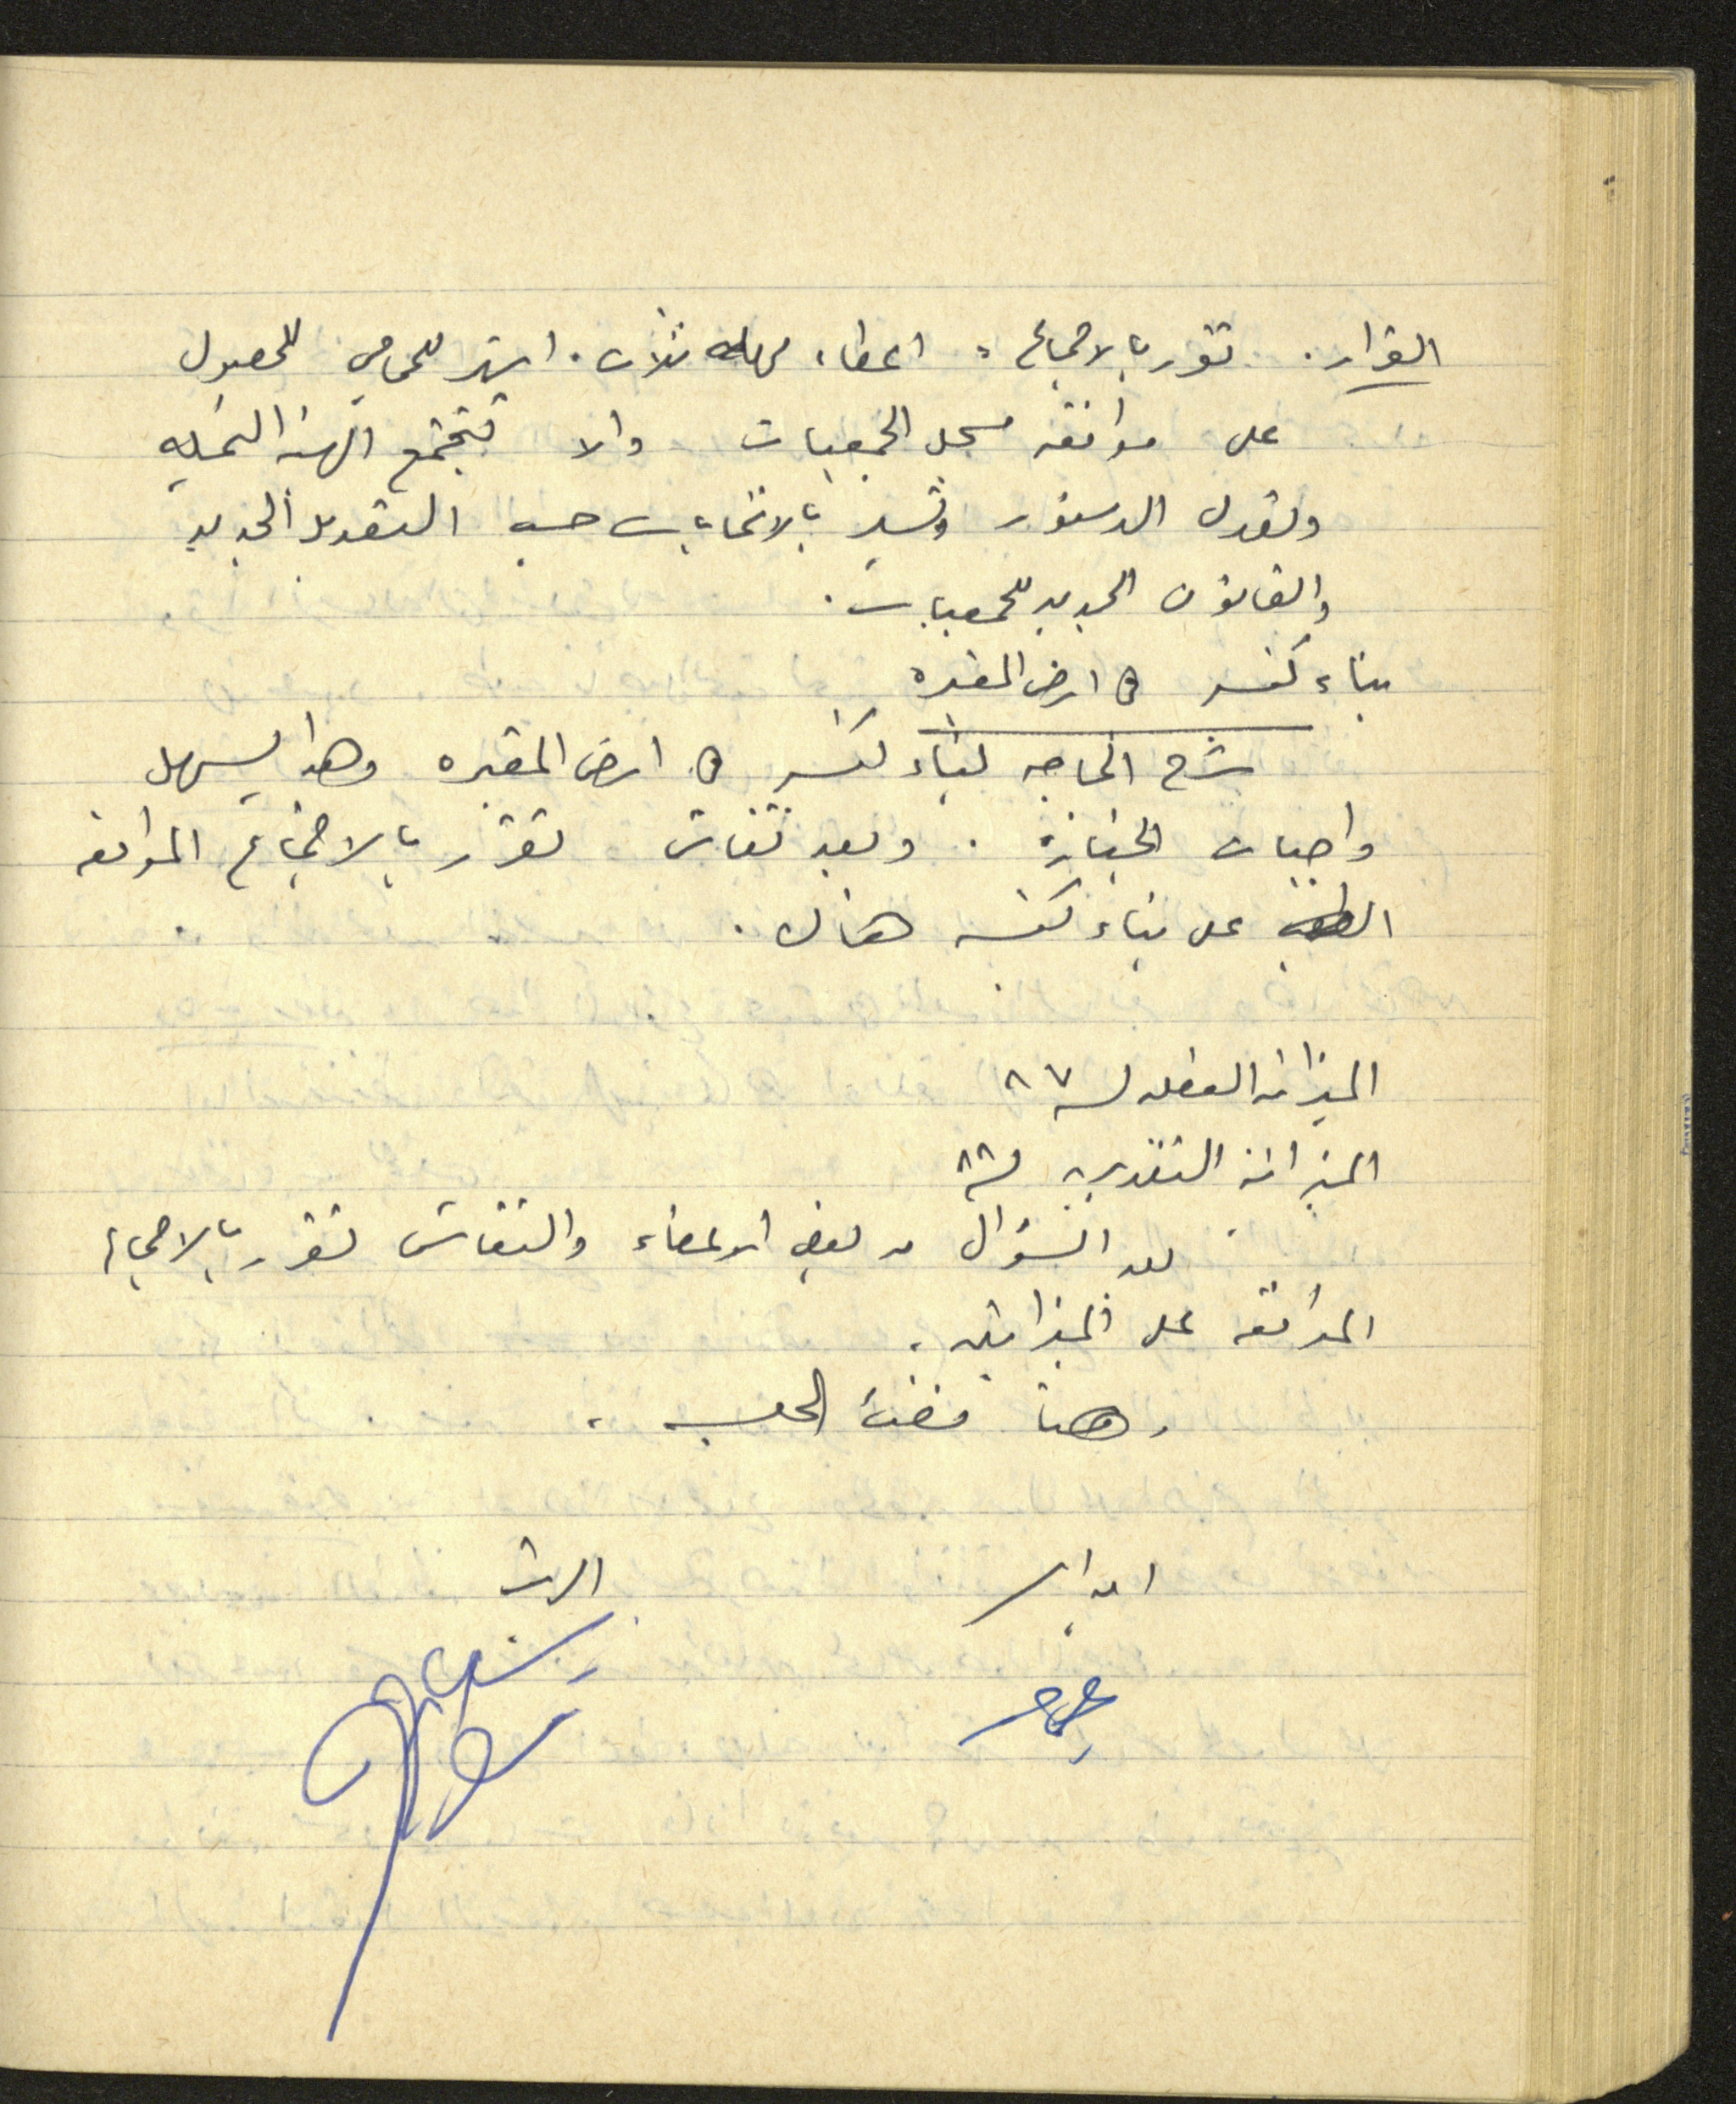 القرار. تقرر بالاجماع: اعطاء مهله ثلاث اشهر للمحامي للحصول
على موافقه مسجل الجمعيات والا تجتمع الهيئه التمثيليه
وتعدل الدستور وتسير بالانتخابات حسب التعديل الجديد
والقانون الجديد للجمعيات.
بناء كنيسه في ارض المقبره
شرح الحاجه لبناء كنيسه في ارض المقبره وهذا يسهل
واجبات الجنازة. وبعد نقاش تقرر بالاجماع الموافقه
على بناء كنيسه هناك.
الميزانيه الفعليه لسنه ٨٧
الميزانيه التقديريه لسنه ٨٨
بعد السؤال من بعض الاعضاء والنقاش تقرر بالاجماع
الموافقه على الميزانيتين.
وهنا فضت الجلسه.
امين السر
الرئيس